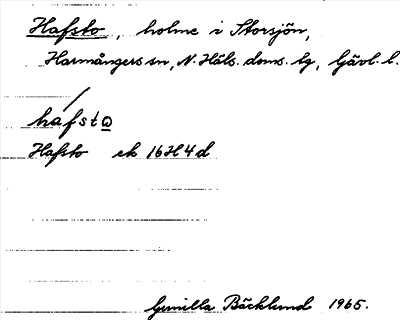 Hafsto, holme i Storsjön,
Harmångers sn, N. Häls. doms. tg, Gävl. l.
hafsta
Hafsto ek 16H4d
Gunilla Bäcklund 1965.